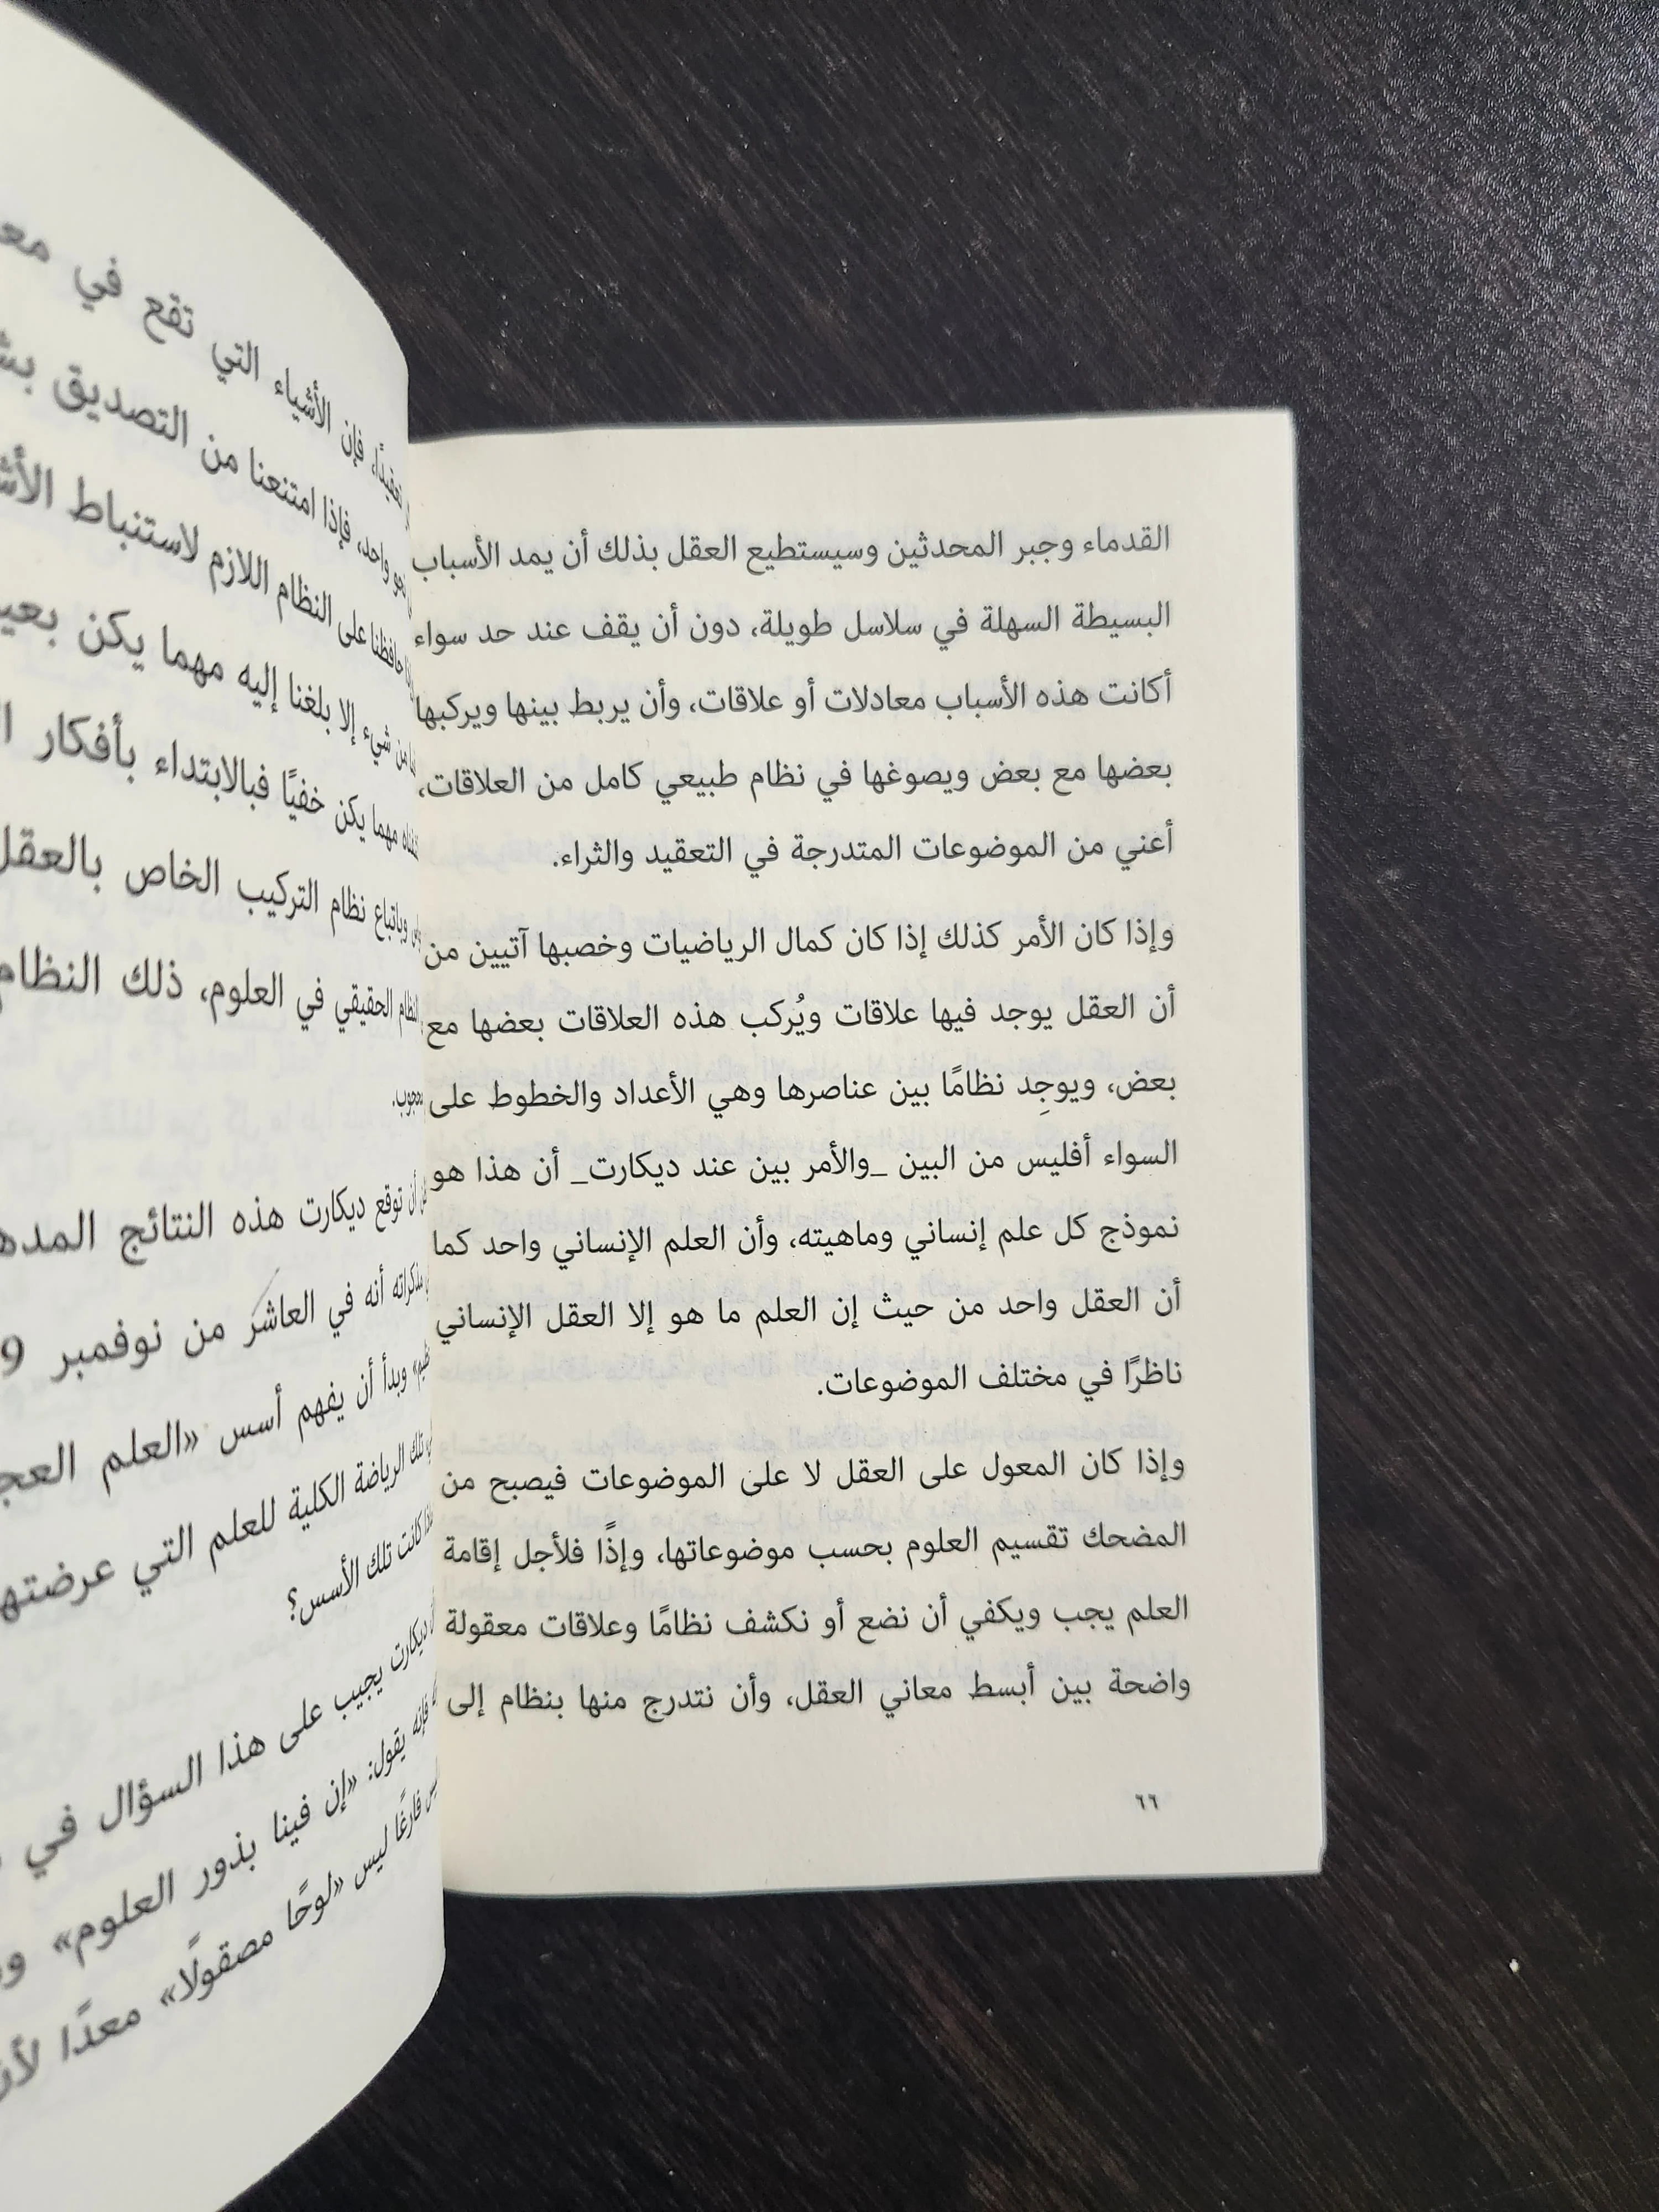 القدماء وجبر المحدثين وسيستطيع العقل بذلك أن يمد الأسباب
البسيطة السهلة في سلاسل طويلة، دون أن يقف عند حد سواء
أكانت هذه الأسباب معادلات أو علاقات، وأن يربط بينها ويركبها
بعضها مع بعض ويصوغها في نظام طبيعي كامل من العلاقات،
أعني من الموضوعات المتدرجة في التعقيد والثراء.
وإذا كان الأمر كذلك إذا كان كمال الرياضيات وخصبها آتيين من
أن العقل يوجد فيها علاقات ويُركب هذه العلاقات بعضها مع
بعض، ويوجِد نظامًا بين عناصرها وهي الأعداد والخطوط على
السواء أفليس من البين _والأمر بين عند ديكارت_ أن هذا هو
نموذج كل علم إنساني وماهيته، وأن العلم الإنساني واحد كما
أن العقل واحد من حيث إن العلم ما هو إلا العقل الإنساني
ناظرًا في مختلف الموضوعات.
وإذا كان المعول على العقل لا على الموضوعات فيصبح من
المضحك تقسيم العلوم بحسب موضوعاتها، وإذًا فلأجل إقامة
العلم يجب ويكفي أن نضع أو نكشف نظامًا وعلاقات معقولة
واضحة بين أبسط معاني العقل، وأن نتدرج منها بنظام إلى
٦٦
تعقيدًا، فإن الأشياء التي تقع في
واحد، فإذا امتنعنا من التصديق
حافظنا على النظام اللازم لاستنباط
من شيء إلا بلغنا إليه مهما يكن
مهما يكن خفيًا فبالابتداء بأفكار
وباتباع نظام التركيب الخاص بالعقل
النظام الحقيقي في العلوم، ذلك النظام
أن توقع ديكارت هذه النتائج
مذكراته أنه في العاشر من نوفمبر
وبدأ أن يفهم أسس «العلم
تلك الرياضة الكلية للعلم التي عرضتها
كانت تلك الأسس؟
ديكارت يجيب على هذا السؤال في
فإنه يقول: «إن فينا بذور العلوم»
فارغًا ليس «لوحًا مصقولًا» معدًا